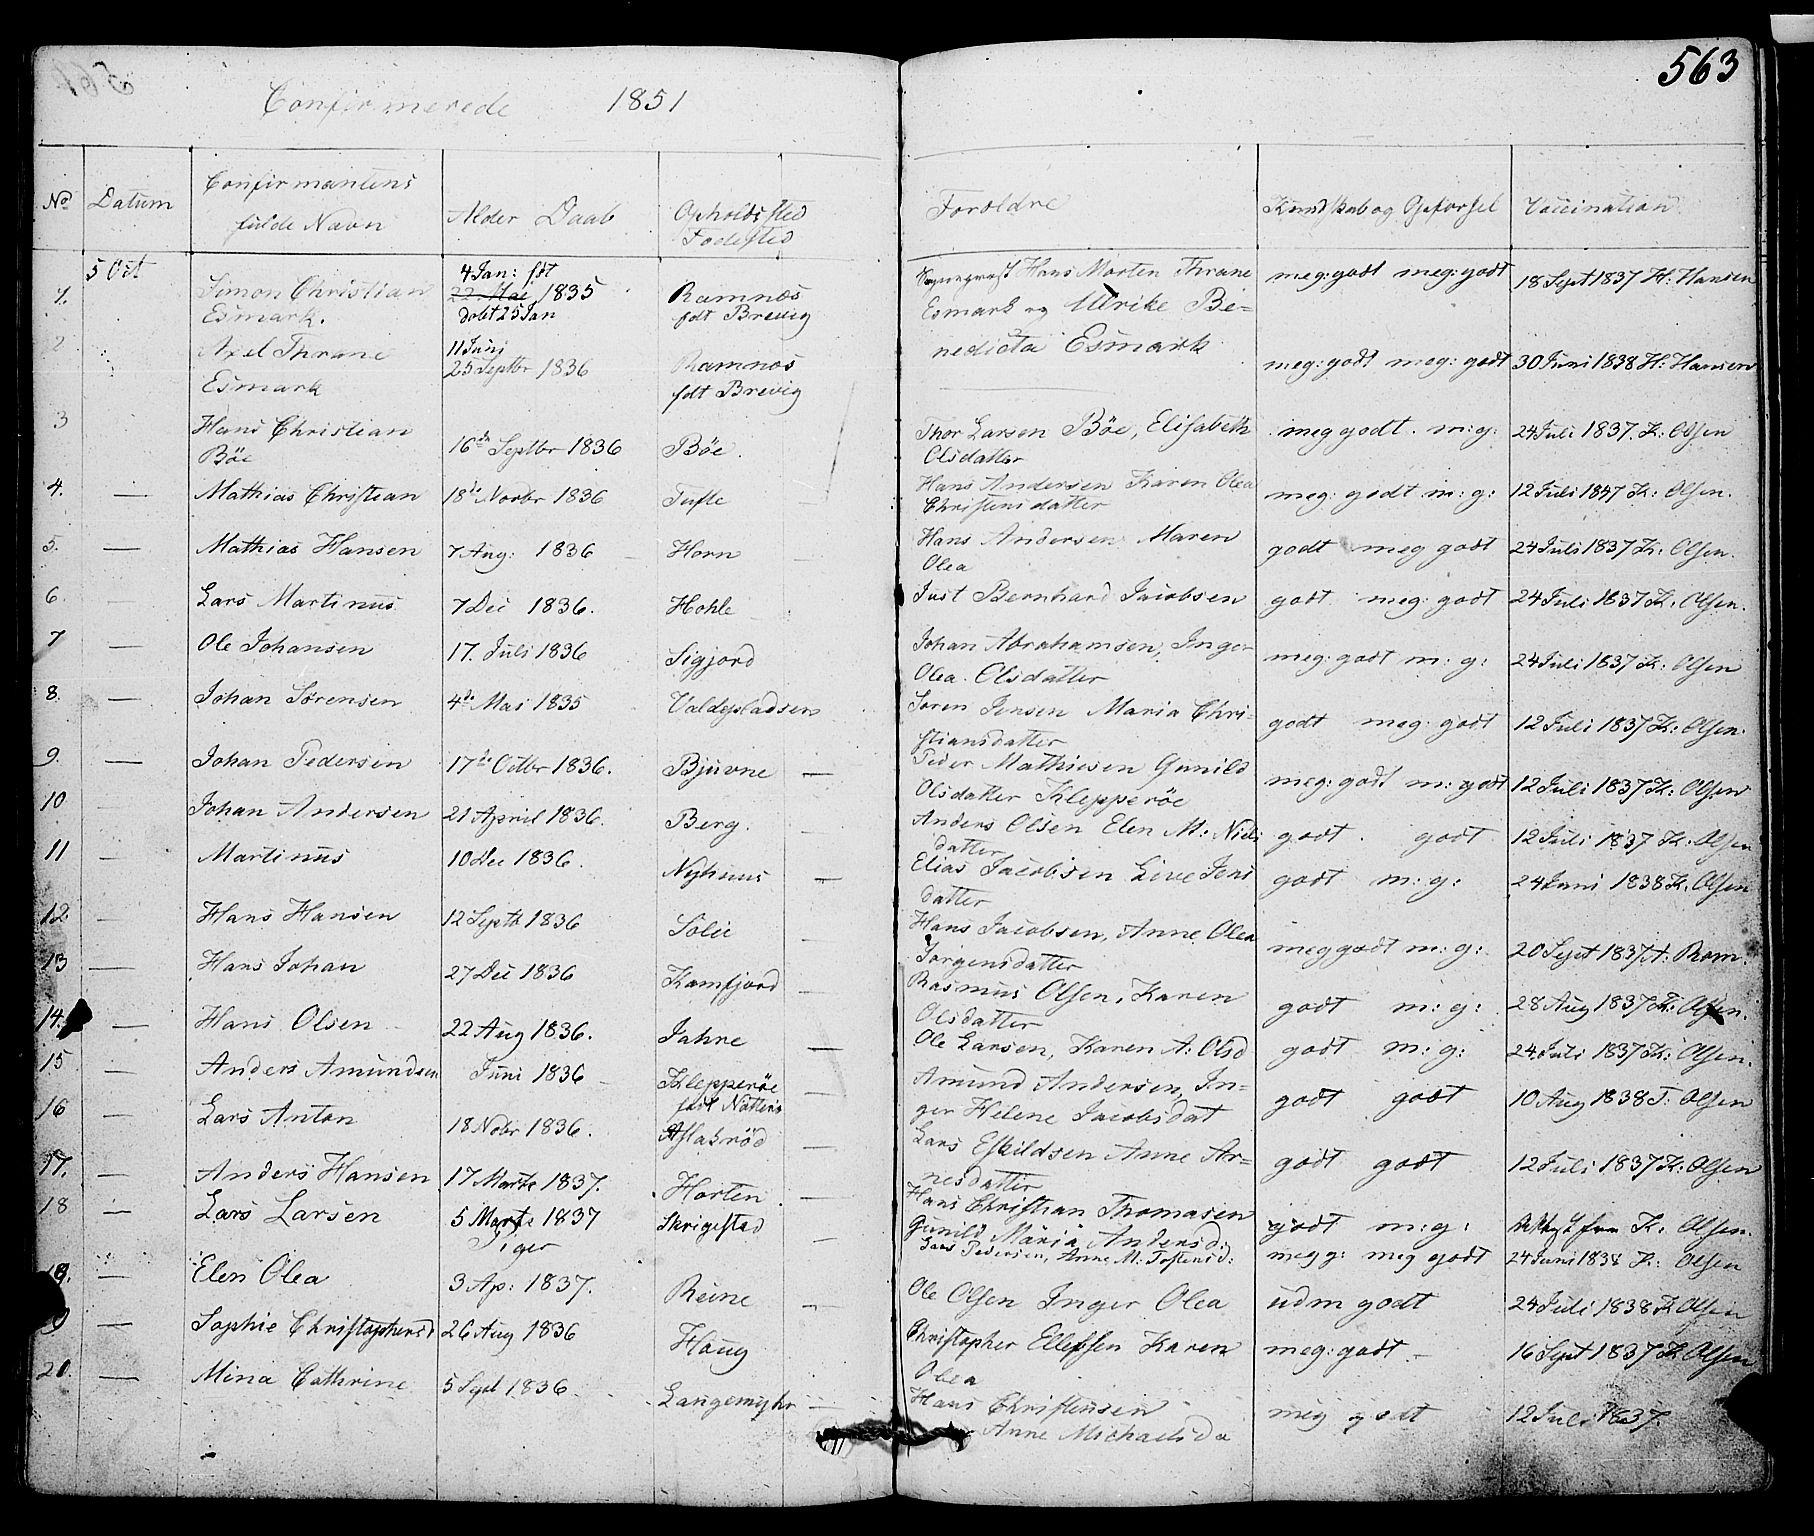 563
Confirmerede 1851
No Datum Confirmantens fulde Navn Alder Daab Opholdssted Fødested Foreldre Kundskab og Opførsel Vaccination
5 Oct
1. Simon Christian Esmark. 4 Jan: fdt 22 Mai 1835 døbt 25 Jan Ramnæs fdt Brevig Sogneprest Hans Morten Thrane Esmark og Ulrike Be= nedicta Esmark meg: godt meg: godt 18 Sept 1837 H: Hansen
2 Axel Thrane Esmark 11 Junj 25 Septbr 1836 Ramnæs fdt Brevig meg: godt meg: godt 30 Juni 1838 H: Hansen
3 Hans Christian Böe 16de Septbr 1836 Böe. Thor Larsen Böe, Elisabeth Olsdatter meg godt. m: g: 24 Juli 1837. K: Olsen
4. — Mathias Christian 18de Novbr 1836 Tufte Hans Andersen Karen Olea Christensdatter meg: godt m: g: 12 Juli 1847 K: Olsen.
5. — Mathias Hansen 7 Aug: 1836 Horn Hans Andersen Maren Olea godt meg godt 24 Juli 1837 K: Olsen.
6. — Lars Martinus 7 Dec 1836. Hohle Just Bernhard Jacobsen godt meg: godt 24 Juli 1837 K: Olsen.
7 — Ole Johansen 17. Juli 1836 Sigjord Johan Abrahamsen, Inge= Olea Olsdatter meg: godt m: g: 24 Juli 1837 K: Olsen
8. — Johan Sørensen 4de Mai 1835 Valdepladsen Søren Jensen Maria Chri- stiansdatter godt meg: godt 12 Juli 1837 K: Olsen.
9. — Johan Pedersen 17de Octbr 1836. Bjuvne — Peder Mathiesen Gunild Olsdatter Klepperöe meg: godt m: godt 12 Juli 1837 K: Olsen
10 — Johan Andersen 21 April 1836. Berg. — Anders Olsen Elen M: Niels datter godt. godt 12 Juli 1837 K: Olsen
11 — Martinus 10 Dec 1836. Nyhuus — Elias Jacobsen Live Jens datter godt m: g: 24 Juni 1838 K: Olsen
12. — Hans Hansen 12 Septb 1836 Solie — Hans Jacobsen, Anne Olea Jørgensdatter meg godt m: g: 20 Sept 1837 A: Ram.
13 — Hans Johan 27 Dec 1836 Kamfjord — Rasmus Olsen, Karen Olsdatter godt m: g: 28 Aug 1837 K: Olsen.
14. — Hans Olsen 22 Aug 1836. Jahre — Ole Larsen, Karen A: Olsd godt m: g: 24 Juli 1837 K: Olsen.
15 — Anders Amundsen Juni 1836 Klepperöe — Amund Andersen, In= ger Helene Jacobsdat godt godt 10 Aug 1838 T: Olsen
16 — Lars Anton 18 Nobr 1836. Aslakröd — Lars Eskildsen Anne Ar= nesdatter godt godt 12 Juli 1837 K: Olsen
17. — Anders Hansen 17 Marts 1837. Horten — Hans Christian Thomasen Gunild Maria Andersd: godt m: g: K: Olsen.
18 — Lars Larsen 5 Marts 1837 Skrigestad — Lars Pedersen, Anne M: Tostensd: meg g: meg godt 24 Juni 1838 K: Olsen
Piger
18. — Elen Olea 3 Ap: 1837. Reine — Ole Olsen Inger Olea udm godt 24 Juli 1838 K Olsen
9 — Sophie Christophersd 26 Aug 1836 Houg Christopher Ellefsen Karen Olea meg: godt - 16 Sept 1837 K Olsen
20. — Mina Cathrine 5 Sept 1836 Langemyhr — Hans Christensen Anne Michaelsda meg godt 12 Juli 1837.